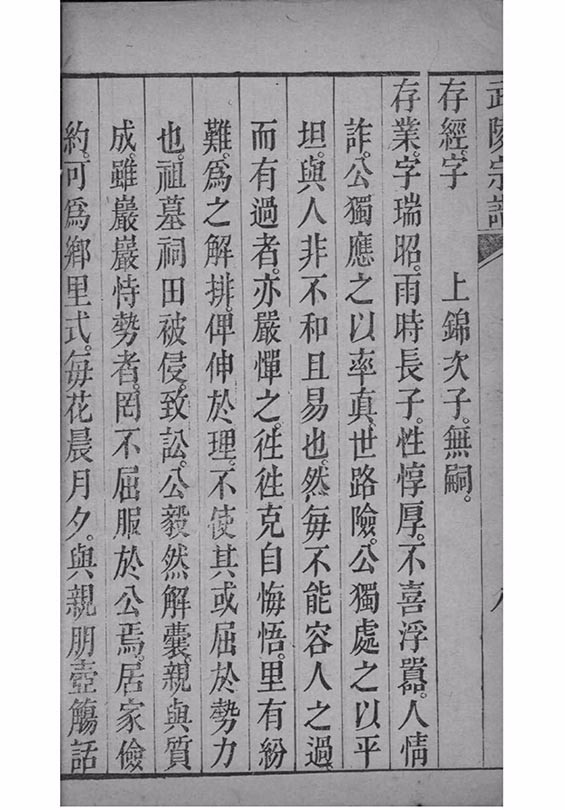 武陵宗譜
八
存經。字　　上錦次子。無嗣。
存業。字瑞昭。雨時長子。性惇厚。不喜浮囂。人情
詐。公獨應之以率真。世路險。公獨處之以平
坦。與人非不和且易也。然每不能容人之過。
而有過者。亦嚴憚之。徃徃克自悔悟。里有紛
難。為之解排。俾伸於理。不使其或屈於勢力
也。祖墓祠田被侵。致訟。公毅然解囊。親與質
成。雖巖巖恃勢者。罔不屈服於公焉。居家儉
約。可為鄉里式。每花晨月夕。與親朋壺觴話